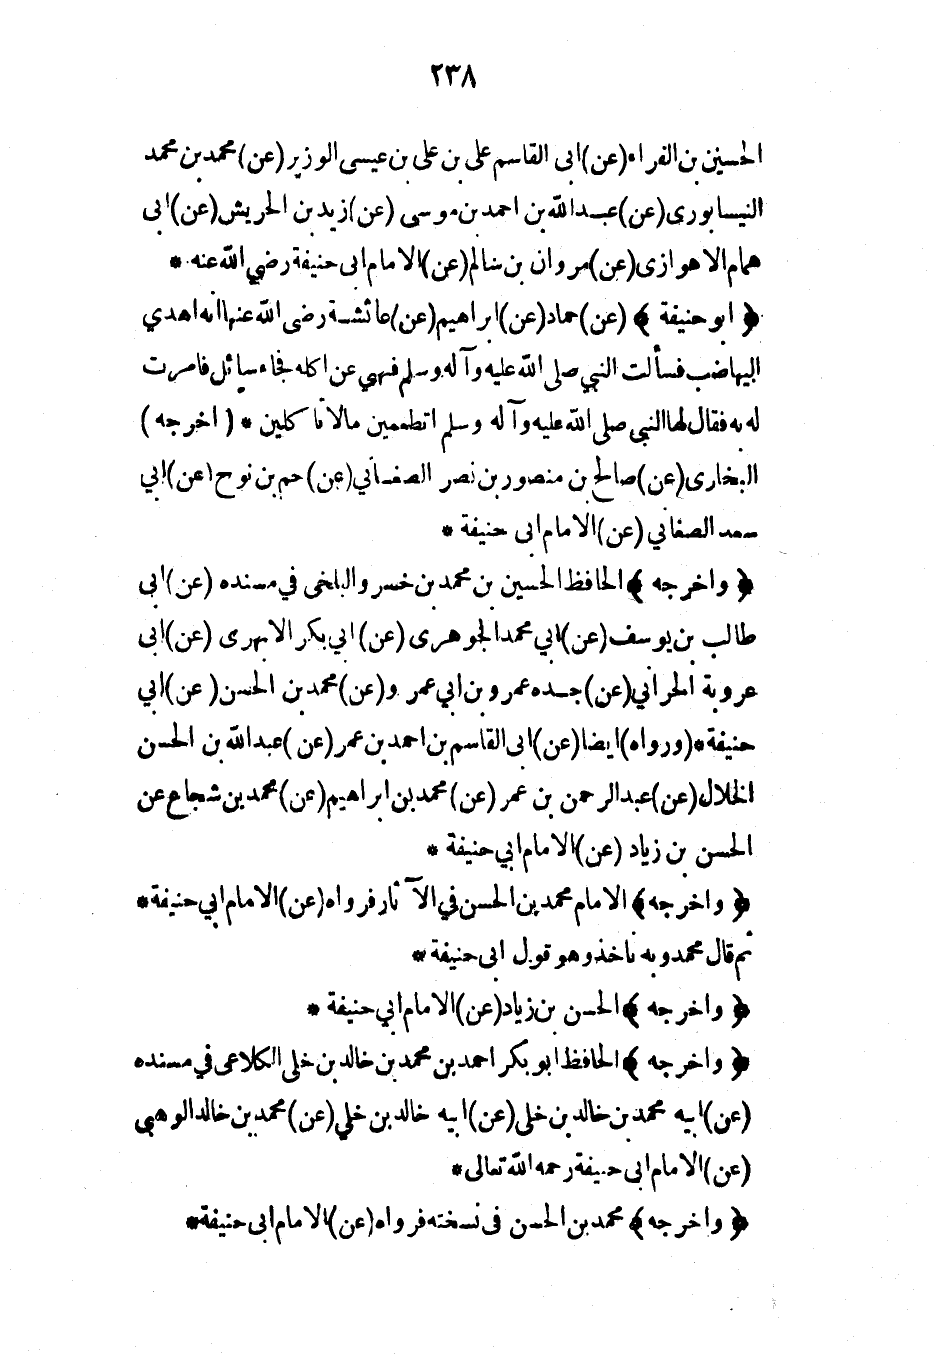 ٢٣٨
الحسين بن الفراء (عن) ابى القاسم على بن على بن عيسى الوزير (عن) محمد بن محمد
النيسابورى (عن) عبدالله بن احمد بن موسى (عن) زيد بن الحريش (عن) ابى
همام الاهوازى (عن) مروان بن سالم (عن) الامام ابى حنيفة رضي الله عنه *
﴿ ابو حنيفة ﴾ (عن) حماد (عن) ابراهيم (عن) عائشة رضى الله عنها انه اهدي
اليها ضب فسألت النبي صلى الله عليه وآله وسلم فنهي عن اكله فجاء سائل فامرت
له به فقال لها النبى صلى الله عليه وآله وسلم اتطعمين مالا تأكلين * ( اخرجه )
البخارى (عن) صالح بن منصور بن نصر الصغانى (عن) حم بن نوح (عن) ابي
سعد الصغاني (عن) الامام ابى حنيفة *
﴿ واخرجه ﴾ الحافظ الحسين بن محمد بن خسرو البلخى في مسنده (عن) ابى
طالب بن يوسف (عن) ابي محمد الجوهرى (عن) ابي بكر الابهرى (عن) ابى
عروبة الحراني (عن) جده عمرو بن ابي عمرو (عن) محمد بن الحسن (عن) ابي
حنيفة * (ورواه) ايضا (عن) ابى القاسم بن احمد بن عمر (عن) عبدالله بن الحسن
الخلال (عن) عبدالرحمن بن عمر (عن) محمد بن ابراهيم (عن) محمد بن شجاع عن
الحسن بن زياد (عن) الامام ابي حنيفة *
﴿ واخرجه ﴾ الامام محمد بن الحسن في الآثار فرواه (عن) الامام ابي حنيفة *
ثم قال محمد وبه ناخذ وهو قول ابى حنيفة *
﴿ واخرجه ﴾ الحسن بن زياد (عن) الامام ابي حنيفة *
﴿ واخرجه ﴾ الحافظ ابو بكر احمد بن محمد بن خالد بن خلى الكلاعى في مسنده
(عن) ابيه محمد بن خالد بن خلى (عن) ابيه خالد بن خلي (عن) محمد بن خالد الوهبى
(عن) الامام ابى حنيفة رحمه الله تعالى *
﴿ واخرجه ﴾ محمد بن الحسن فى نسخته فرواه (عن) الامام ابى حنيفة *